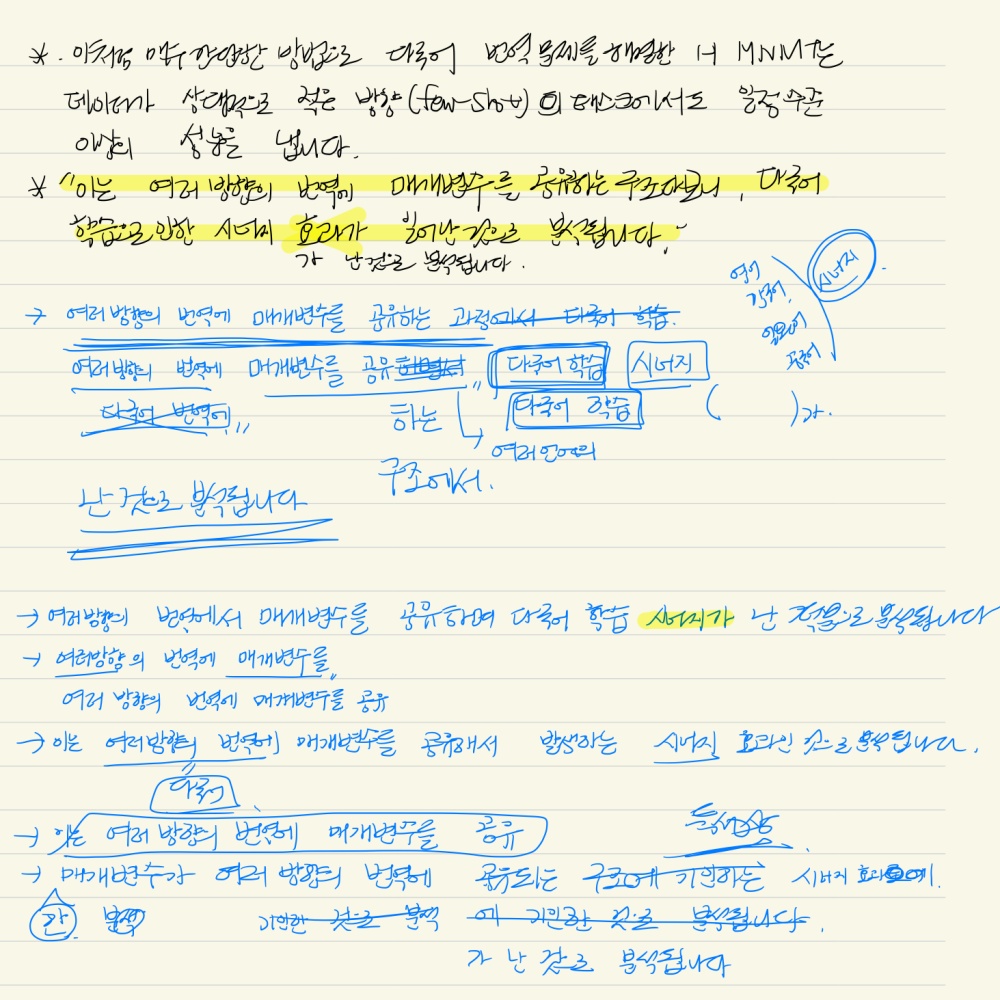 * . 이처럼 매우 간단한 방법으로 다국어 번역 문제를 해결한 H MNMT는
데이터가 상대적으로 적은 방향(few-shot)의 태스크에서도 일정수준
이상의 성능을 냅니다.
* "이는 여러 방향의 번역에 매개변수를 공유하는 구조다보니, 다국어
학습으로 인한 시너지 효과가 일어난 것으로 분석됩니다."
가 난 것으로 분석됩니다.
영어
일본어
시너지
→ 여러 방향의 번역에 매개변수를 공유하는 과정에서 다국어 학습.
여러 방향의 번역에 매개변수를 공유하면서 " 다국어 학습 시너지
다국어 번역에 " 하는 다국어 학습 ( )가.
여러 언어의
구조에서.
난 것으로 분석됩니다
→ 여러방향의 번역에서 매개변수를 공유하며 다국어 학습 시너지가 난 것으로 분석됩니다
→ 여러방향의 번역에 매개변수를 "
여러 방향의 번역에 매개변수를 공유
→ 이는 여러방향의 번역에 매개변수를 공유해서 발생하는 시너지 효과인 것으로 분석됩니다.
다국어
→ 이는 여러 방향의 번역에 매개변수를 공유
→ 매개변수가 여러 방향의 번역에 공유되는 구조에 기인하는 시너지 효과
간 분석 기인한 것으로 분석 에 기인한 것으로 분석됩니다.
가 난 것으로 분석됩니다